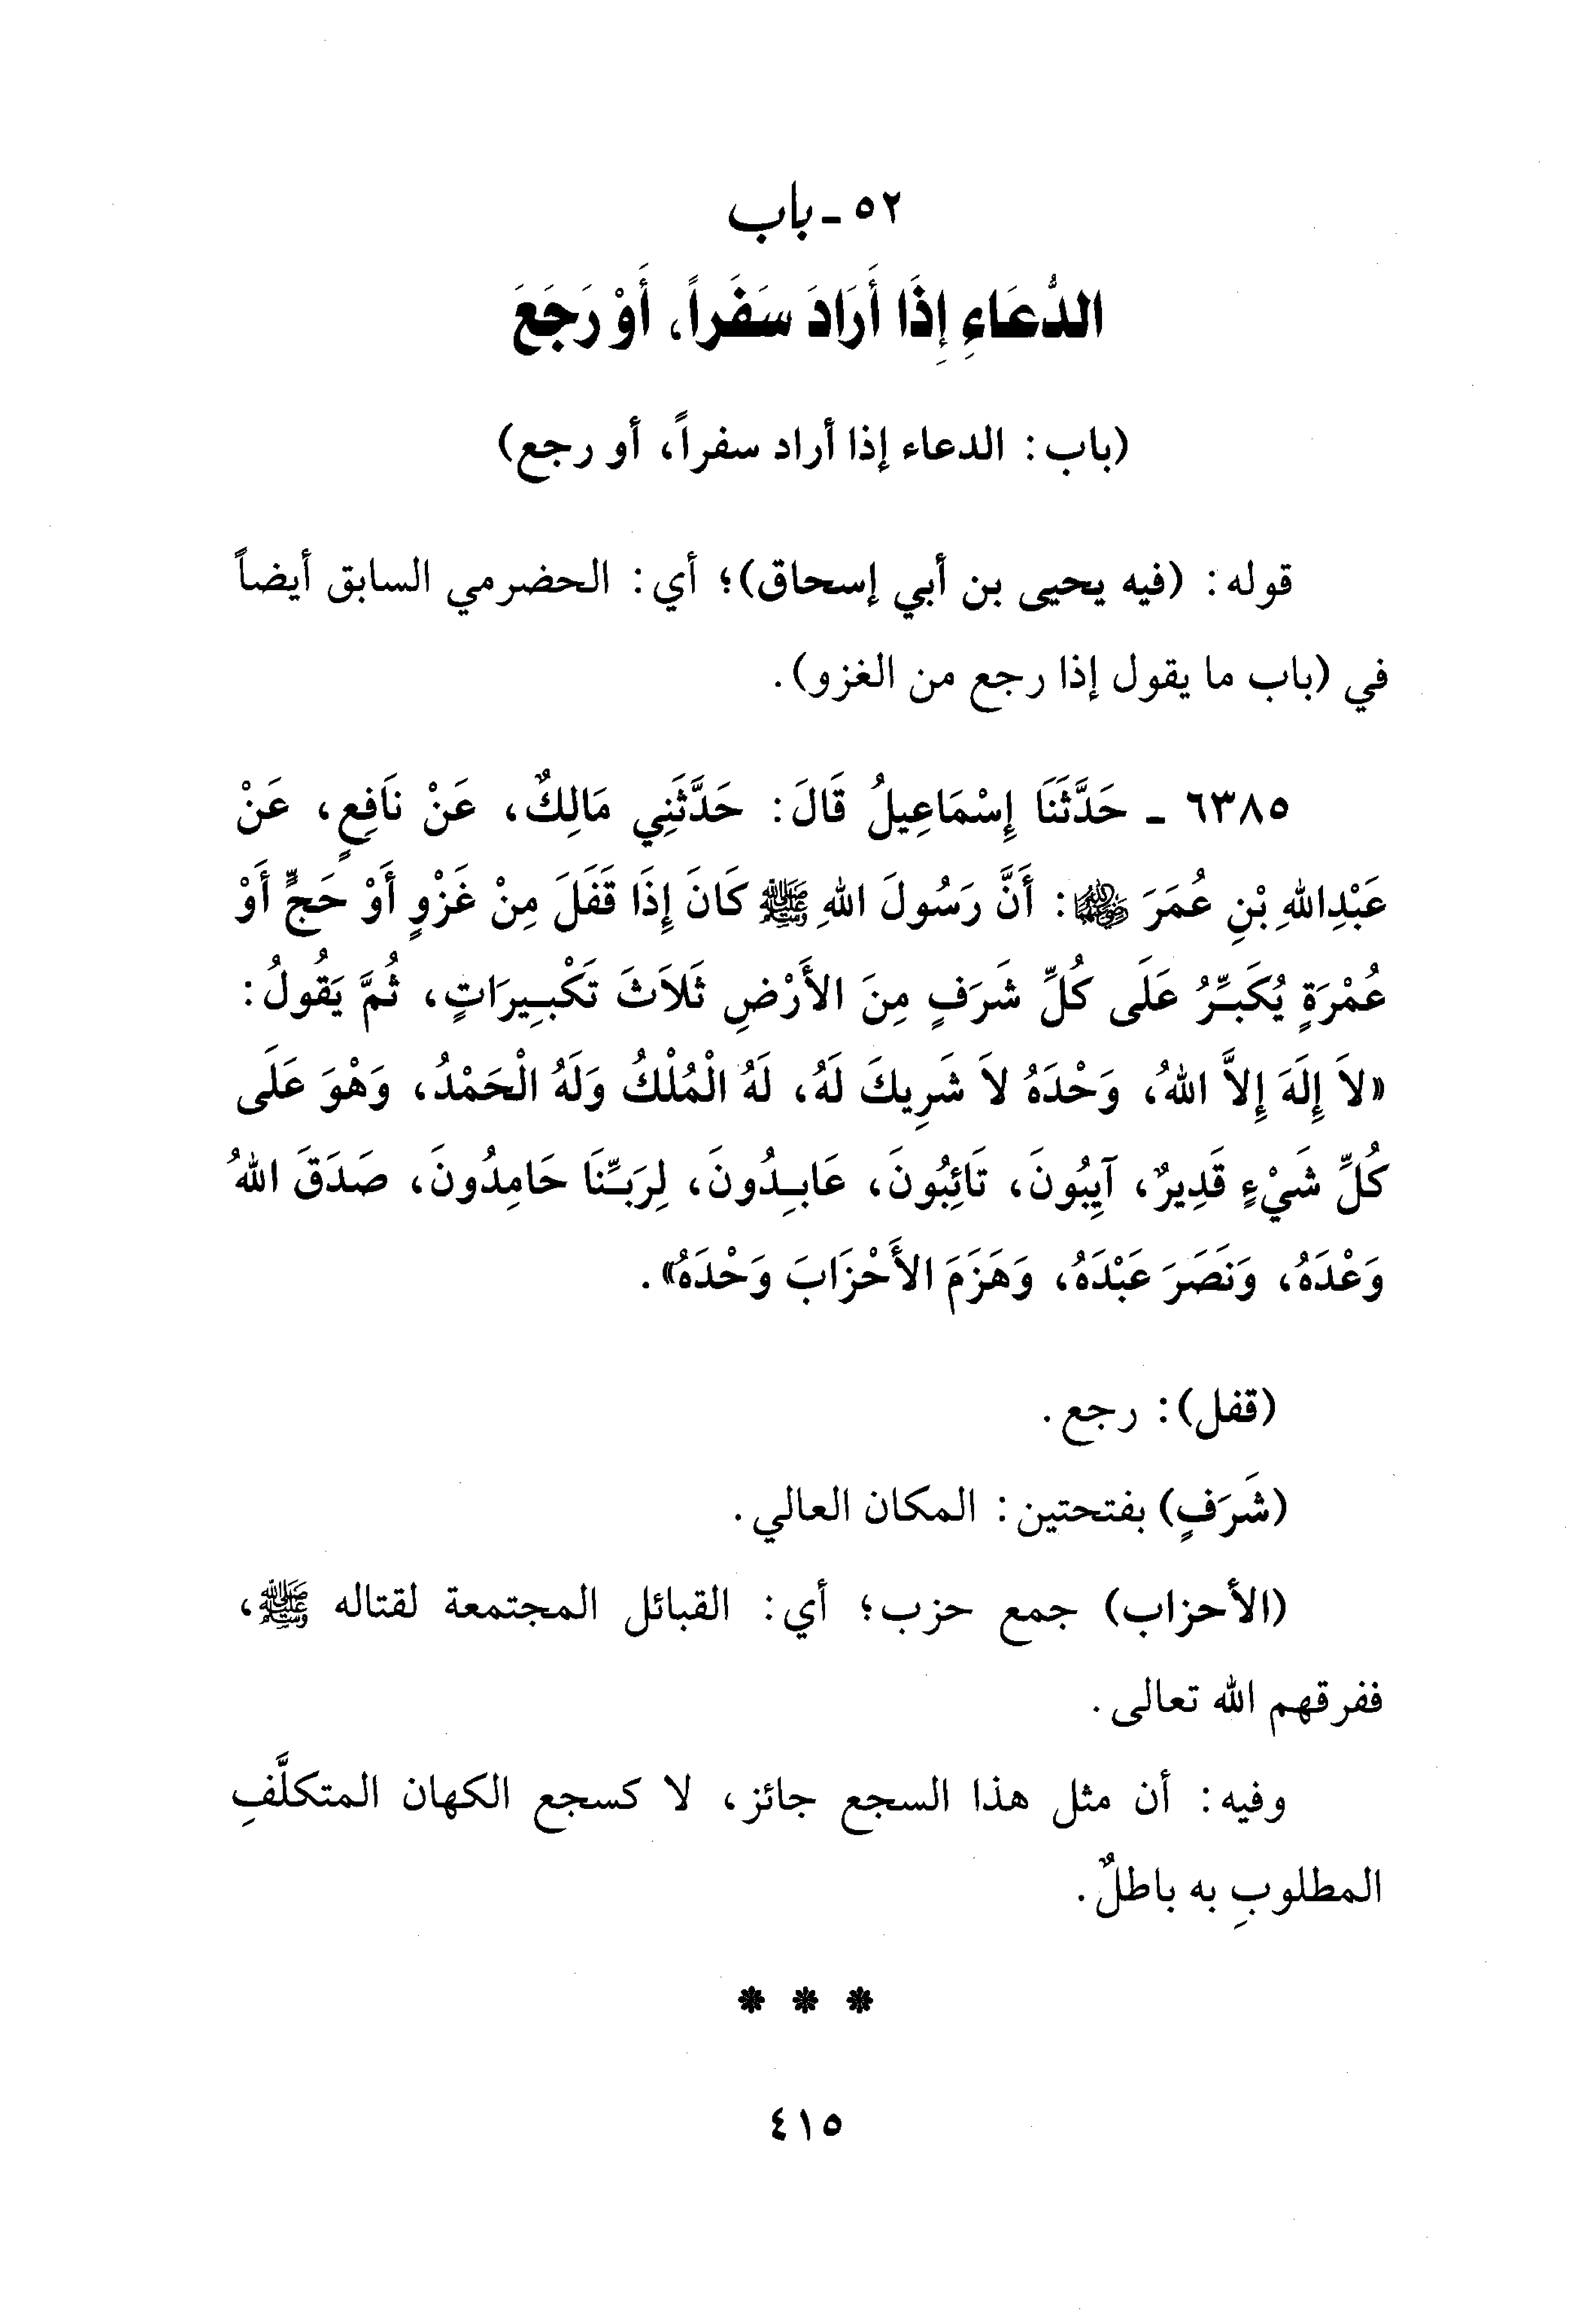 ٥٢ - باب
الدُّعَاءِ إِذَا أَرَادَ سَفَراً، أَوْ رَجَعَ
(باب: الدعاء إذا أراد سفراً، أو رجع)
قوله: (فيه يحيى بن أبي إسحاق)؛ أي: الحضرمي السابق أيضاً
في (باب ما يقول إذا رجع من الغزو).
٦٣٨٥ - حَدَّثَنَا إِسْمَاعِيلُ قَالَ: حَدَّثَنِي مَالِكٌ، عَنْ نَافِعٍ، عَنْ
عَبْدِاللهِ بْنِ عُمَرَ ﵁: أَنَّ رَسُولَ اللهِ ﷺ كَانَ إِذَا قَفَلَ مِنْ غَزْوٍ أَوْ حَجٍّ أَوْ
عُمْرَةٍ يُكَبِّرُ عَلَى كُلِّ شَرَفٍ مِنَ الأَرْضِ ثَلاَثَ تَكْبِيرَاتٍ، ثُمَّ يَقُولُ:
«لاَ إِلَهَ إِلاَّ اللهُ، وَحْدَهُ لاَ شَرِيكَ لَهُ، لَهُ الْمُلْكُ وَلَهُ الْحَمْدُ، وَهْوَ عَلَى
كُلِّ شَيْءٍ قَدِيرٌ، آيِبُونَ، تَائِبُونَ، عَابِدُونَ، لِرَبِّنَا حَامِدُونَ، صَدَقَ اللهُ
وَعْدَهُ، وَنَصَرَ عَبْدَهُ، وَهَزَمَ الأَحْزَابَ وَحْدَهُ».
(قفل): رجع.
(شَرَفٍ) بفتحتين: المكان العالي.
(الأحزاب) جمع حزب؛ أي: القبائل المجتمعة لقتاله ﷺ،
ففرقهم الله تعالى.
وفيه: أن مثل هذا السجع جائز، لا كسجع الكهان المتكلَّفِ
المطلوبِ به باطلٌ.
* * *
٤١٥